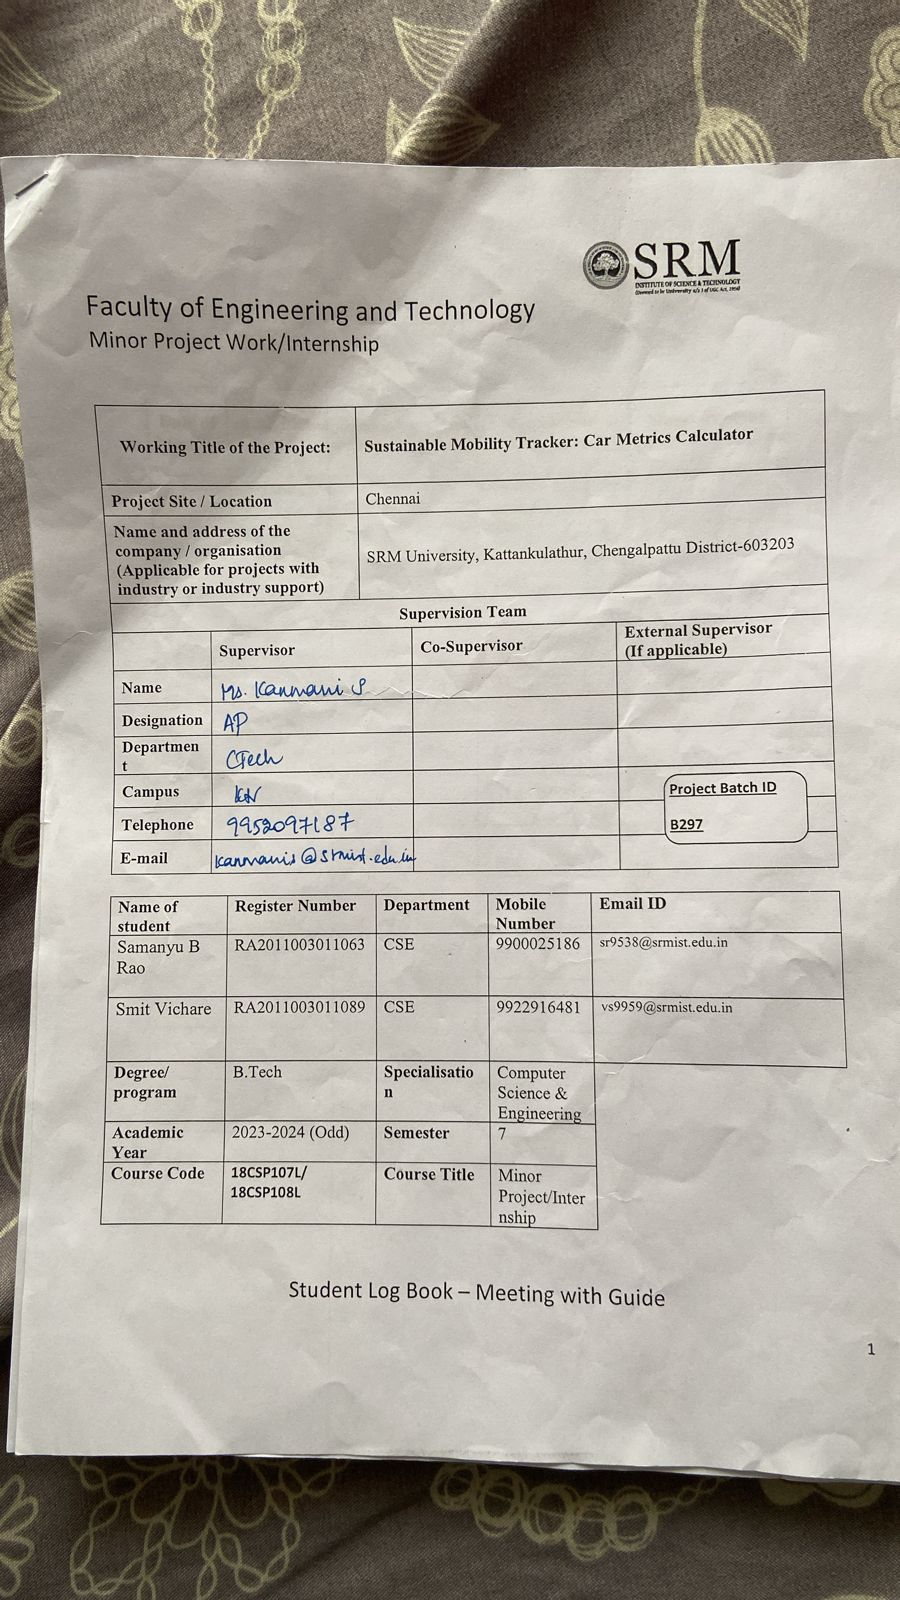 SRM
INSTITUTE OF SCIENCE & TECHNOLOGY
(Deemed to be University u/s 3 of UGC Act, 1956)
Faculty of Engineering and Technology
Minor Project Work/Internship
Working Title of the Project: Sustainable Mobility Tracker: Car Metrics Calculator
Project Site / Location Chennai
Name and address of the
company / organisation
(Applicable for projects with
industry or industry support)
SRM University, Kattankulathur, Chengalpattu District-603203
Supervision Team
Supervisor Co-Supervisor External Supervisor
(If applicable)
Name Ms. Kanmani S
Designation AP
Departmen
t
CTech
Campus
Telephone 9952097187
E-mail kanmanis@srmist.edu.in
Project Batch ID
B297
Name of
student
Register Number Department Mobile
Number
Email ID
Samanyu B
Rao
RA2011003011063 CSE 9900025186 sr9538@srmist.edu.in
Smit Vichare RA2011003011089 CSE 9922916481 vs9959@srmist.edu.in
Degree/
program
B.Tech Specialisatio
n
Computer
Science &
Engineering
Academic
Year
2023-2024 (Odd) Semester 7
Course Code 18CSP107L/
18CSP108L
Course Title Minor
Project/Inter
nship
Student Log Book – Meeting with Guide
1